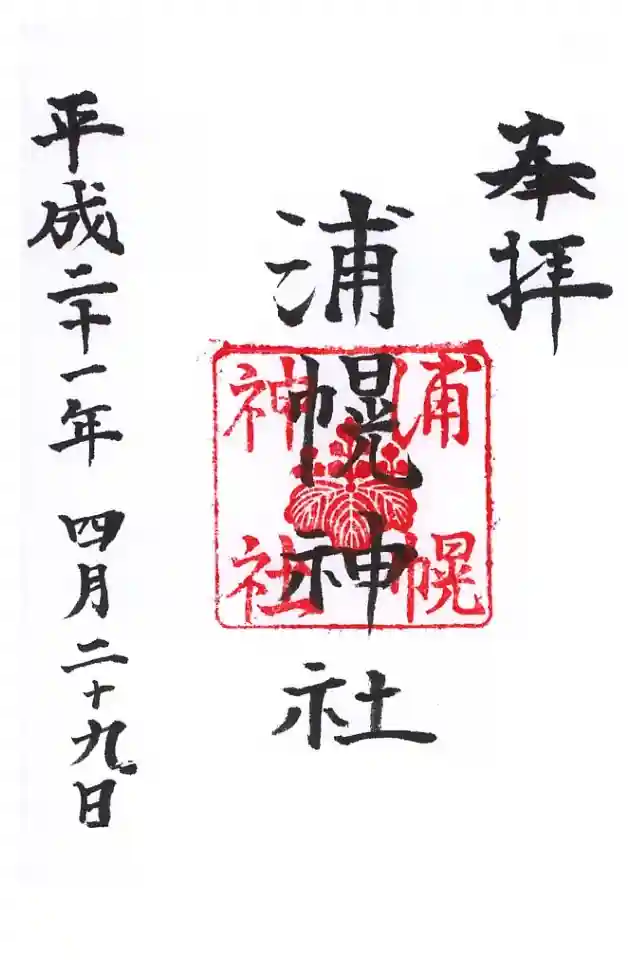 奉拝
浦幌神社
浦幌神社
平成二十一年 四月二十九日